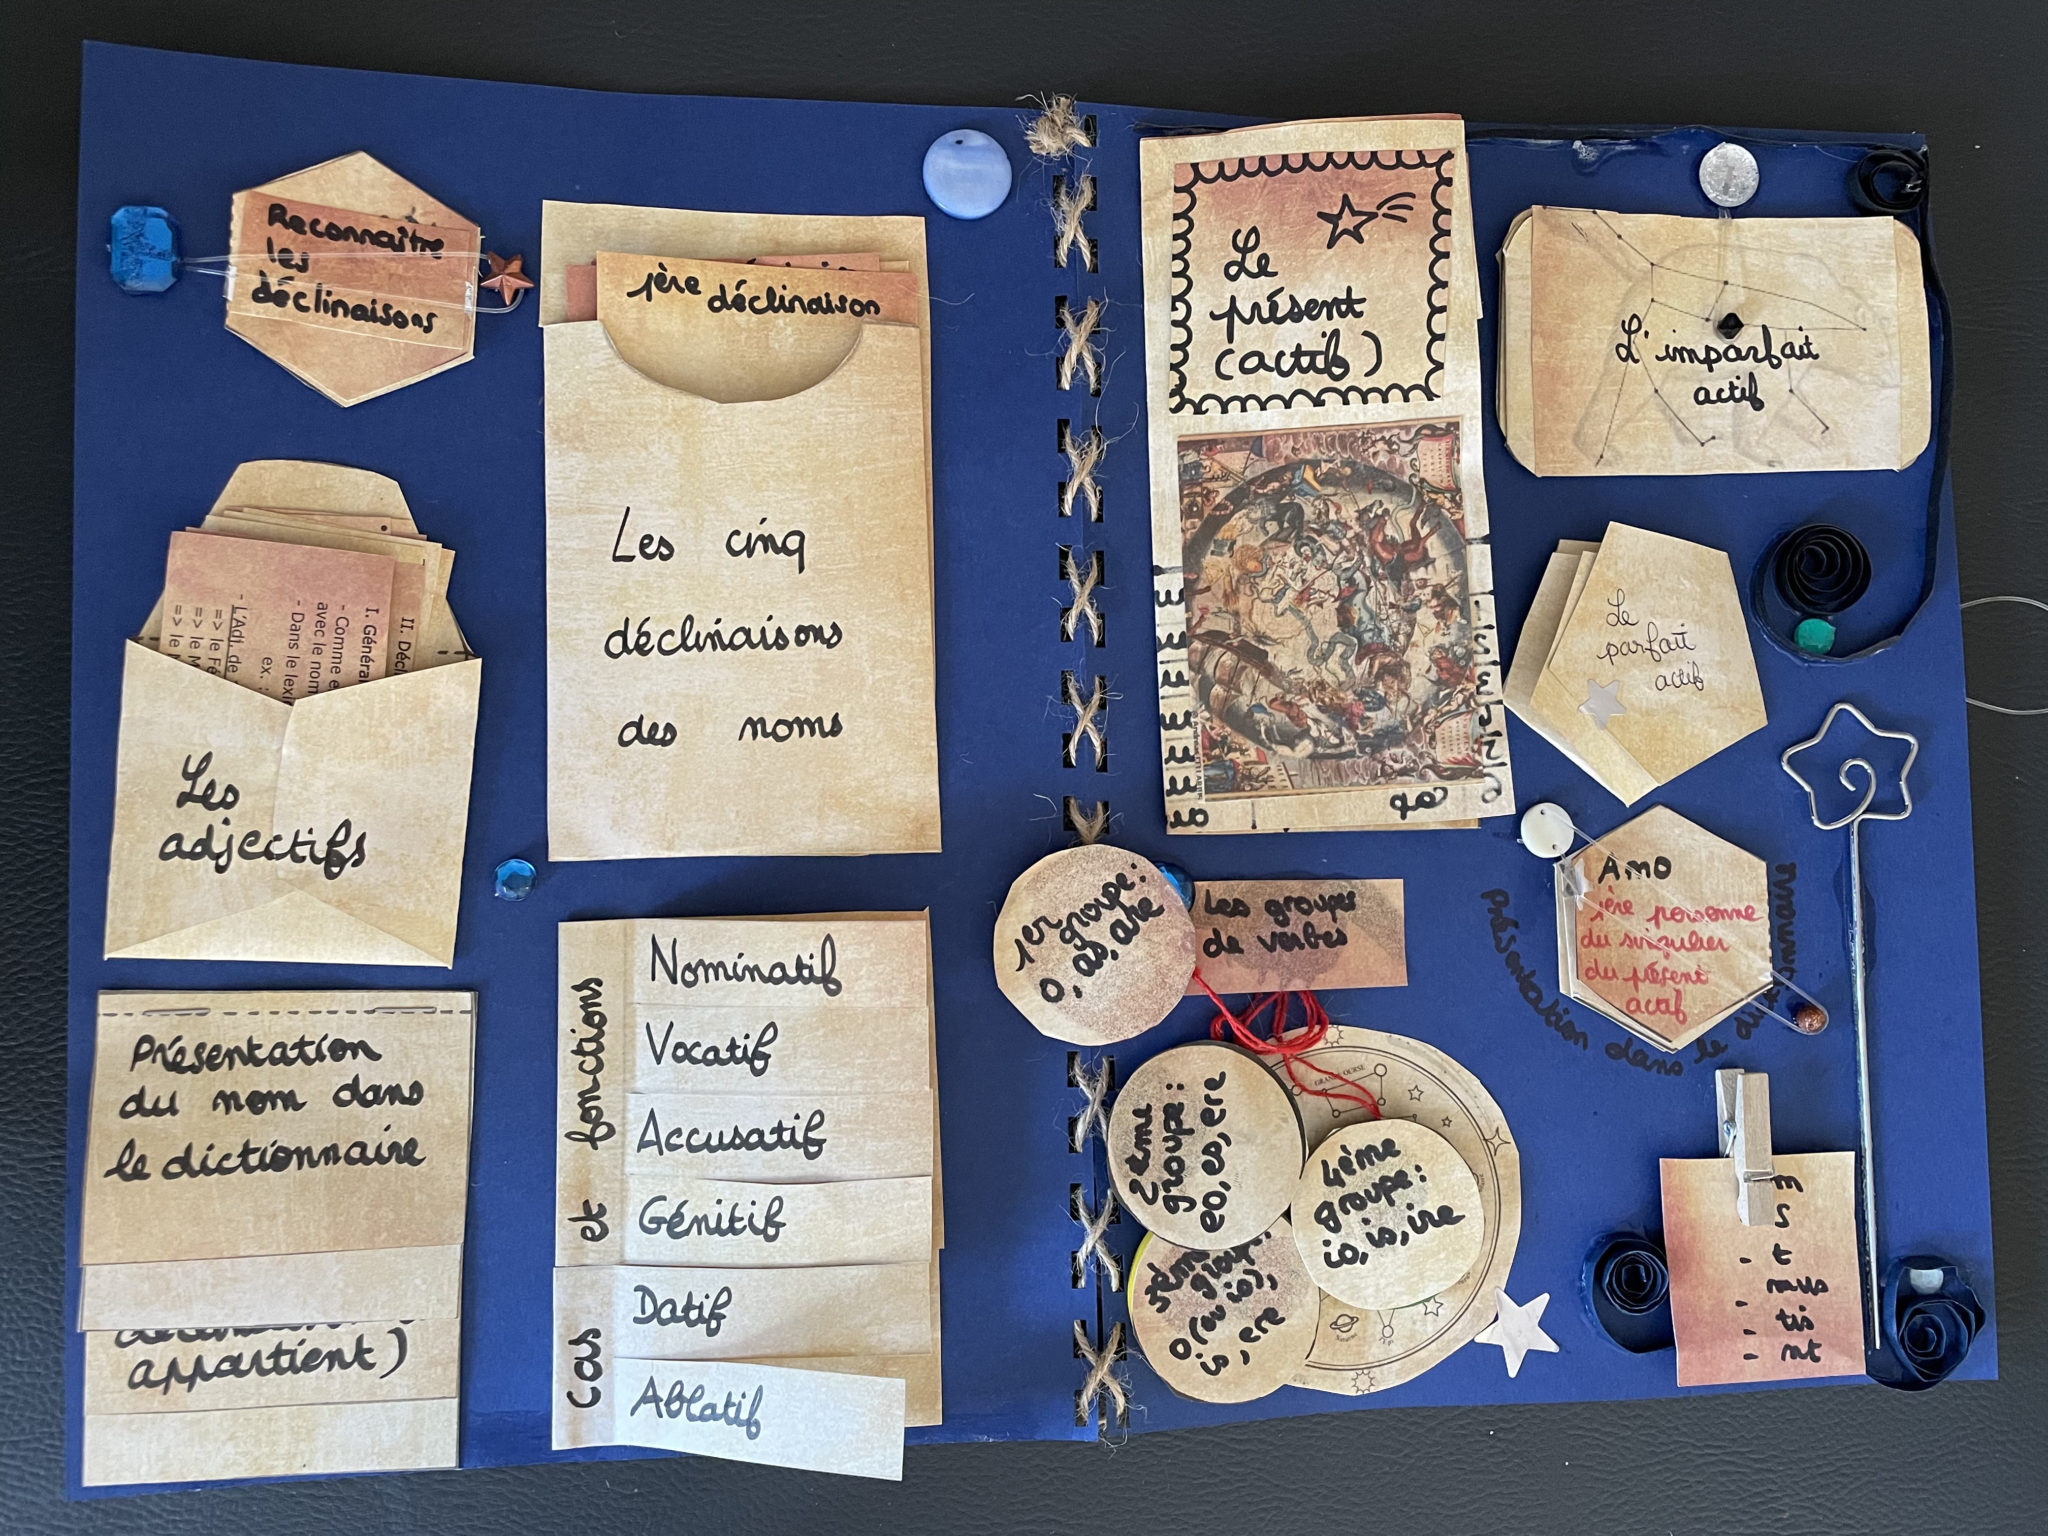 Reconnaître
les
déclinaisons
1ère déclinaison
Les cinq
déclinaisons
des noms
II. Décl
I. Généra
- Comme e
avec le nom
- Dans le lexi
ex. :
- L'Adj. de
=> le Fé
=> le M
=> le N
Les
adjectifs
Présentation
du nom dans
le dictionnaire
appartient)
cas et fonctions
Nominatif
Vocatif
Accusatif
Génitif
Datif
Ablatif
Le
présent
(actif)
L'imparfait
actif
Le
parfait
actif
1er
groupe:
o, as, are
Les groupes
de verbes
2ème
groupe:
eo, es, ere
GRANDE OURSE
4ème
groupe:
io, is, ire
groupe:
o (ou io),
is, ere
Amo
1ère personne
du singulier
du présent
actif
Présentation dans le dictionnaire
m
s
- t
- mus
- tis
- nt